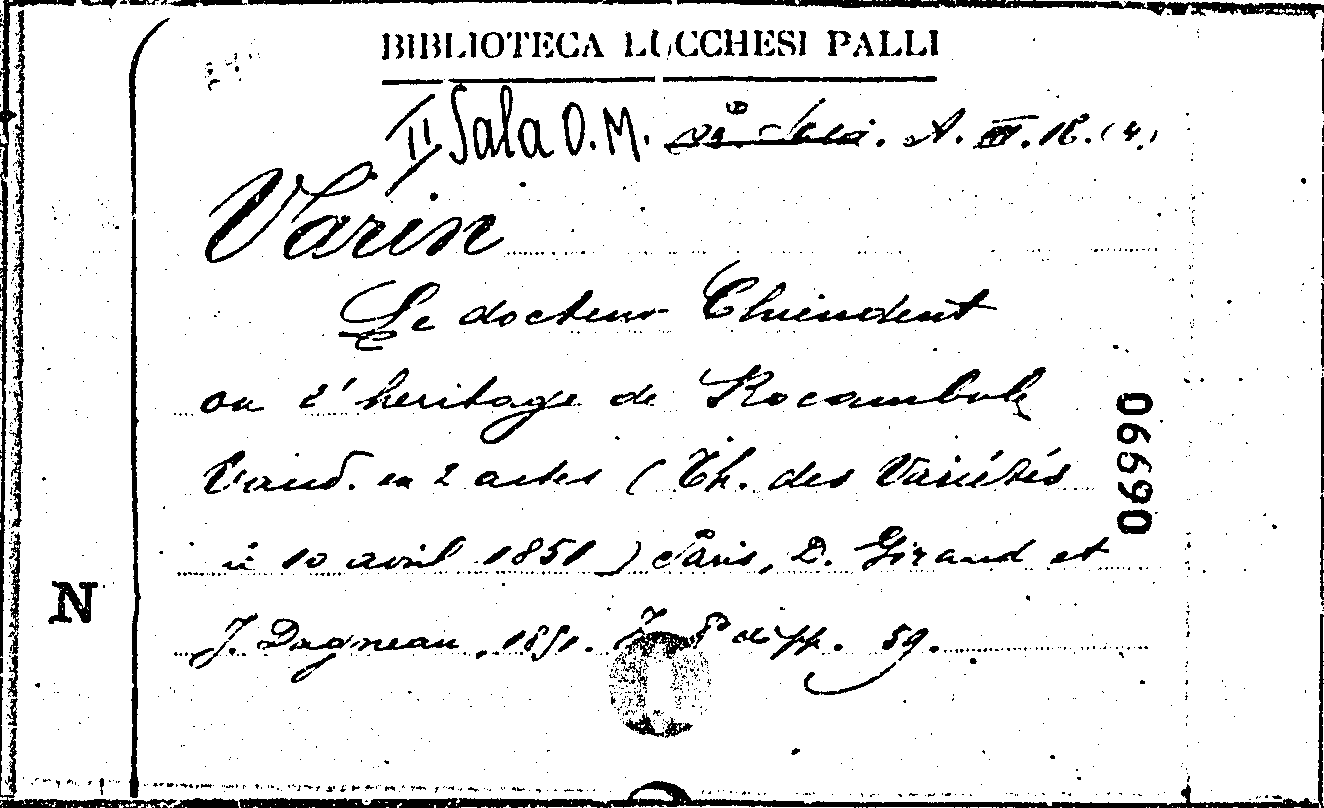 BIBLIOTECA LUCCHESI PALLI
II Sala O.M. A. III. 18. (4)
Varin
Le docteur Chiendent
ou l'heritage de Rocambole
Vaud. en 2 actes (Th. des Variétés
10 avril 1851) Paris, D. Giraud et
J. Dagneau, 1851. 8º di pp. 59.
N
06990